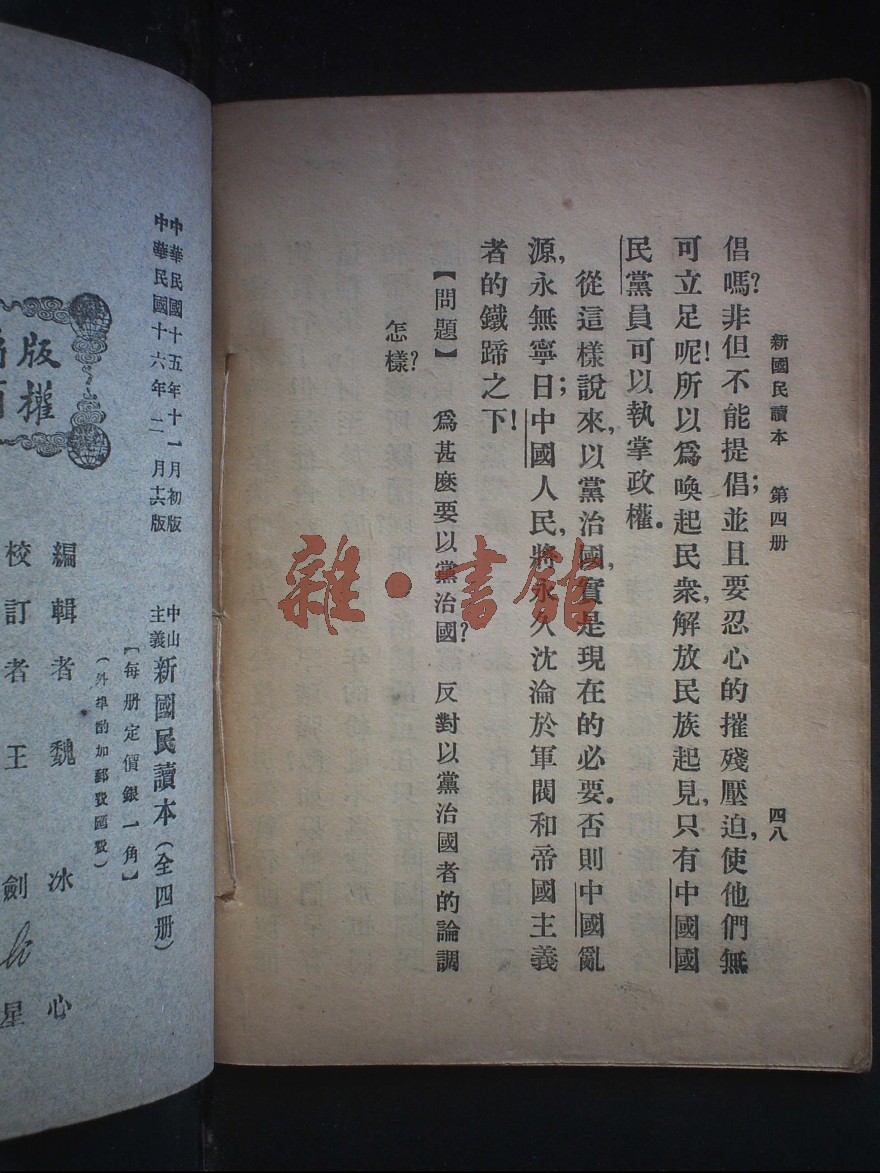 新國民讀本　第四册
四八
倡嗎?非但不能提倡;並且要忍心的摧殘壓迫,使他們無
可立足呢!所以爲喚起民衆,解放民族起見,只有中國國
民黨員可以執掌政權。
從這樣說來,以黨治國,實是現在的必要。否則中國亂
源,永無寧日;中國人民,將永久沈淪於軍閥和帝國主義
者的鐵蹄之下!
【問題】　爲甚麼要以黨治國?　反對以黨治國者的論調
怎樣?
雜·書館
中華民國十五年十一月初版
中華民國十六年二月十六版
中山主義新國民讀本(全四册)
【每册定價銀一角】
(外埠酌加郵費匯費)
編輯者　魏冰心
校訂者　王劍星
版權